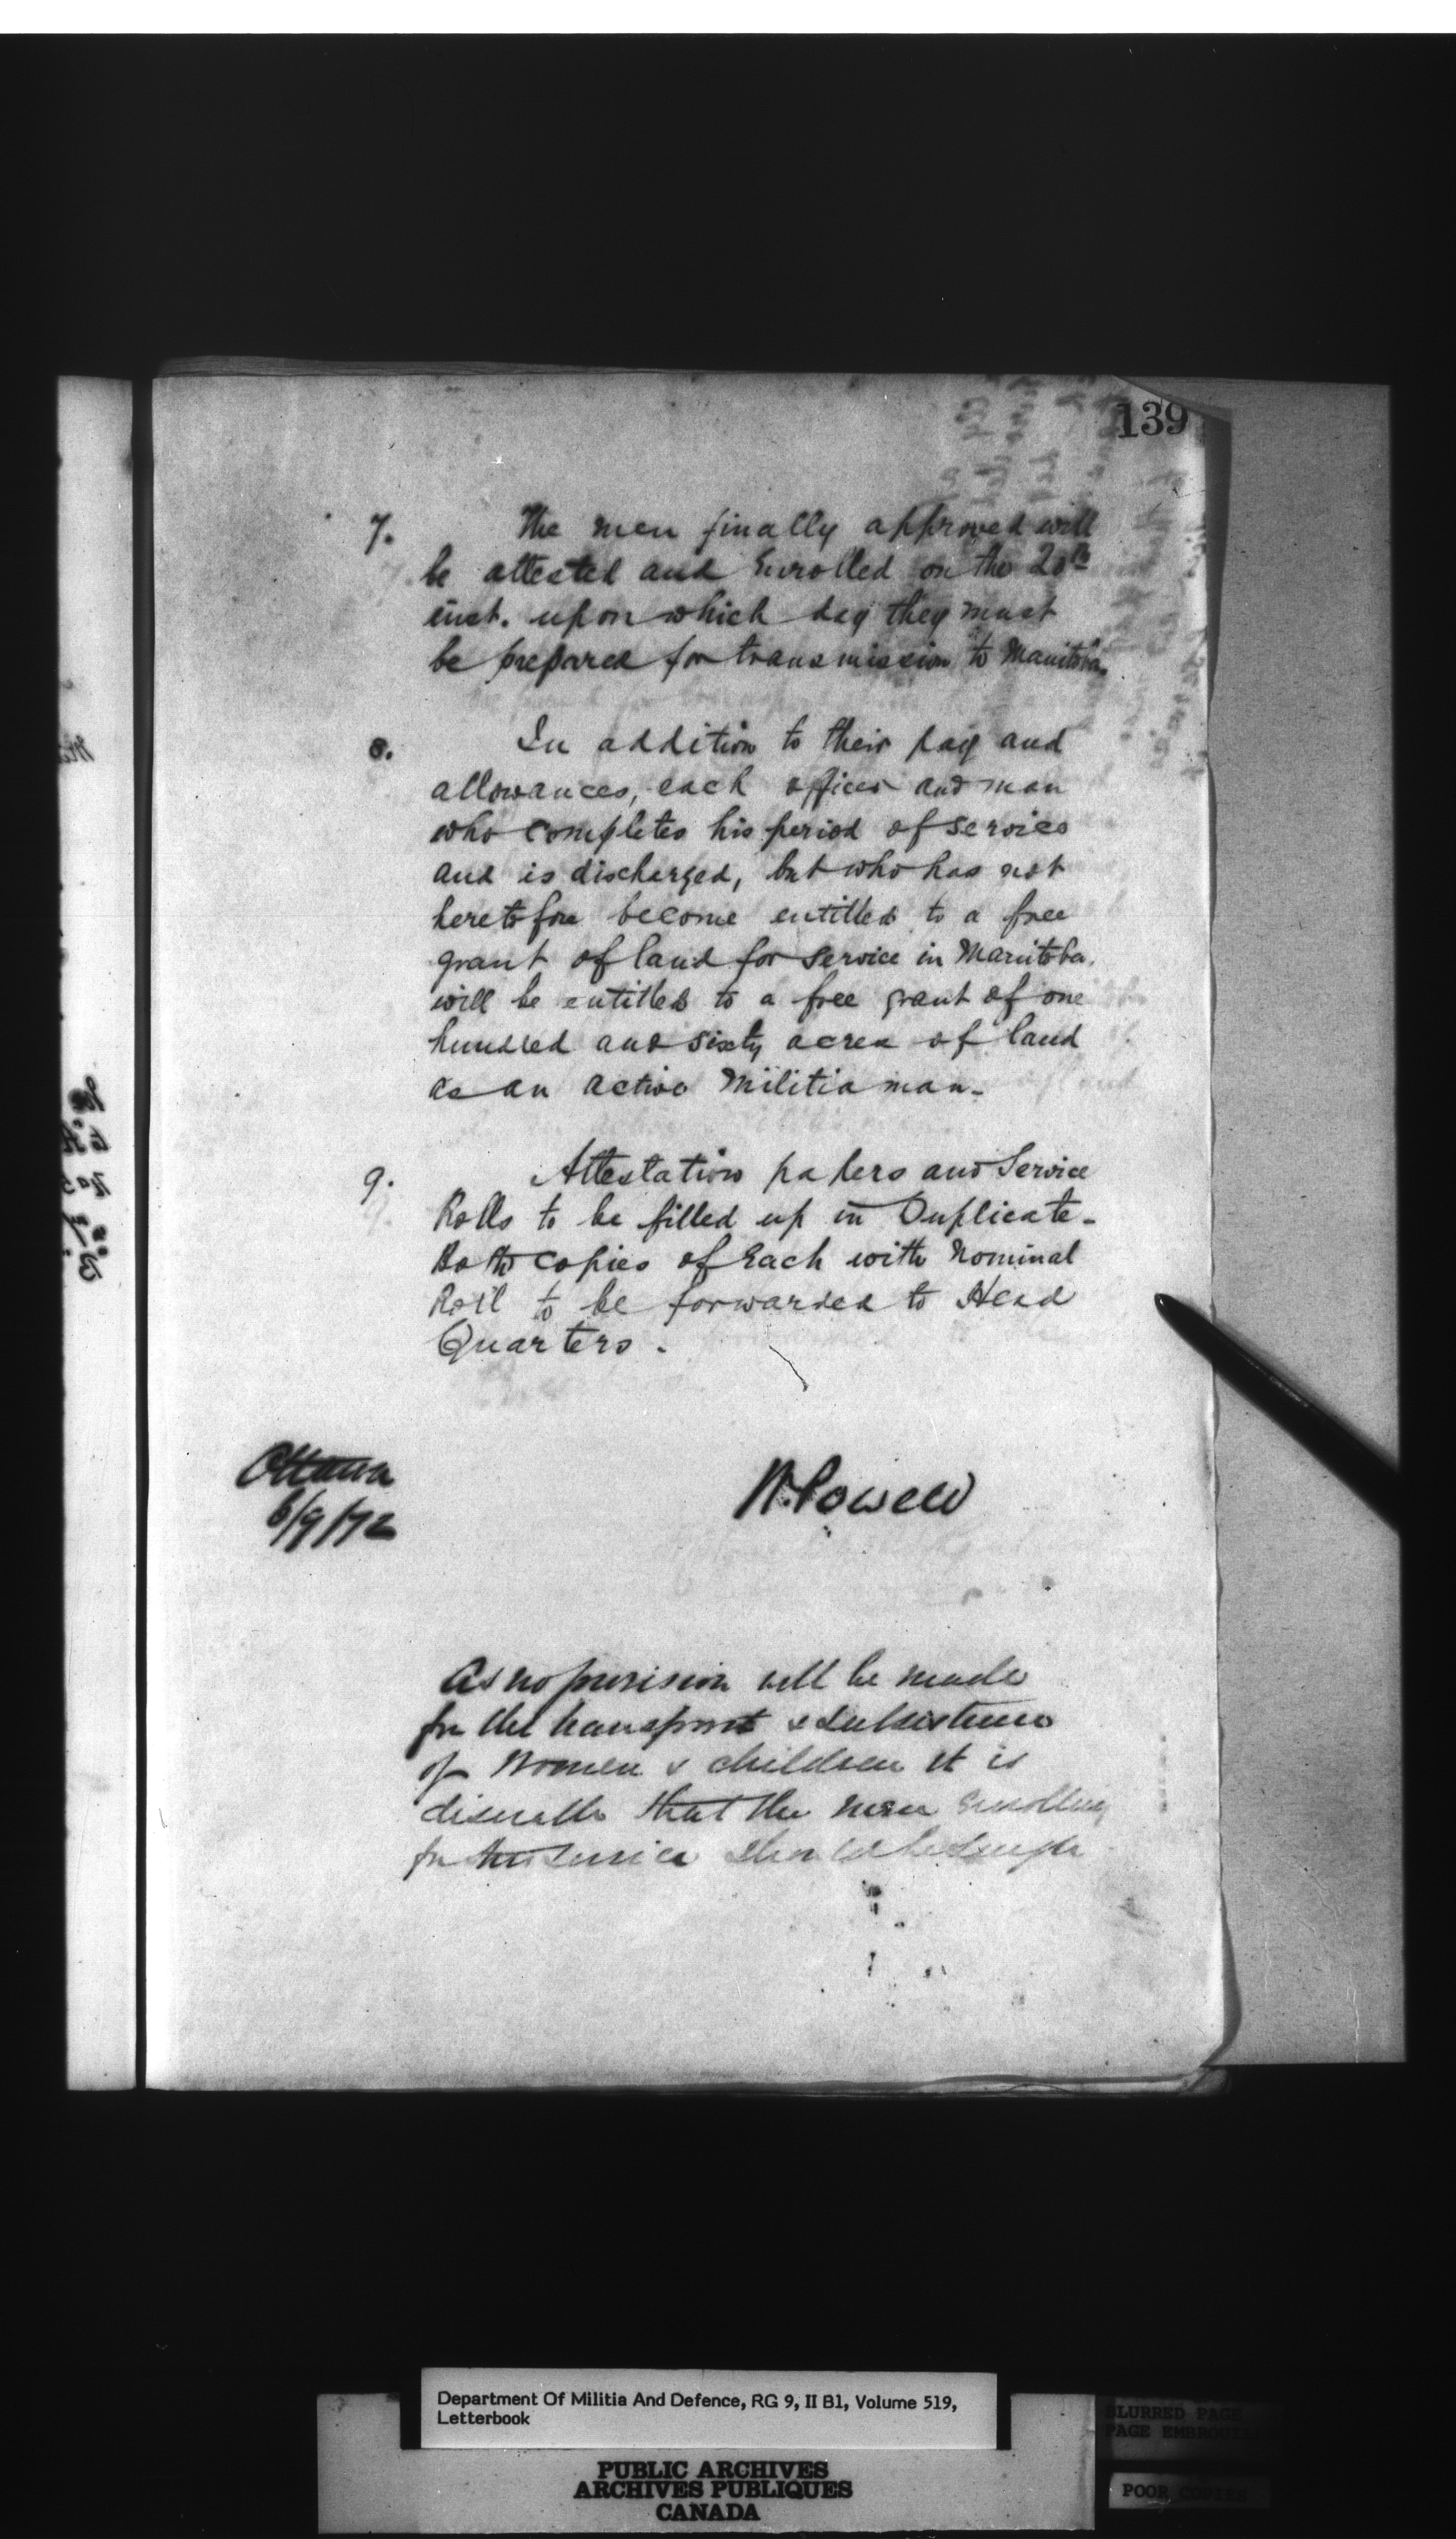 139
7. The men finally approved will
be attested and Enrolled on the 20th
inst. upon which day they must
be prepared for transmission to Manitoba.
8. In addition to their pay and
allowances, each officer and man
who completes his period of service
and is discharged, but who has not
heretofore become entitled to a free
grant of land for service in Manitoba.
will be entitled to a free grant of one
hundred and sixty acres of land
as an active Militia man -
9. Attestation papers and Service
Rolls to be filled up in Duplicate -
Both copies of Each with Nominal
Roll to be forwarded to Head
Quarters.
Ottawa
6/9/72
W. Powell
As no provision will be made
for the transport & subsistence
of Women & children it is
desirable that the men Enrolling
for this service should be single
Department Of Militia And Defence, RG 9, II B1, Volume 519,
Letterbook
PUBLIC ARCHIVES
ARCHIVES PUBLIQUES
CANADA
BLURRED PAGE
PAGE EMBROUILLEE
POOR COPIES